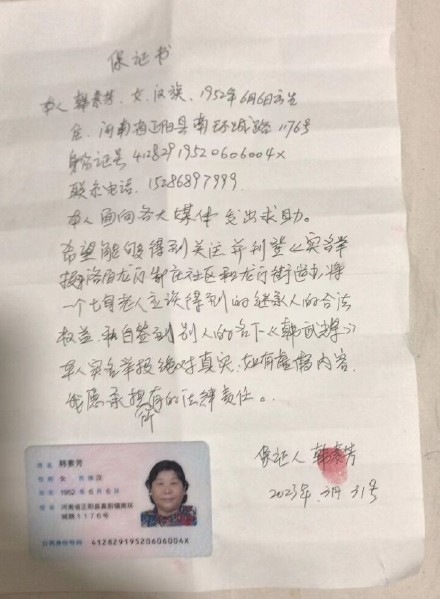 保证书
本人韩素芳、女、汉族、1952年6月6日出生
住、河南省正阳县南环城路1176号
身份证号41282919520606004X
联系电话、15286897999
本人面向各大媒体发出求助。
希望能够得到关注并刊登《实名举
报洛阳龙门
社区和龙门街道办将
一个七旬老人应该得到的继承人的合法
权益私自签到别人的名下《韩武
》
本人实名举报绝对真实、如有虚假内容、
我愿承担所有的法律责任。
保证人韩素芳
2023年3月31号
姓名 韩素芳
性别 女 民族 汉
出生 1952年6月6日
住址 河南省正阳县真阳镇南环
城路1176号
公民身份号码 41282919520606004X